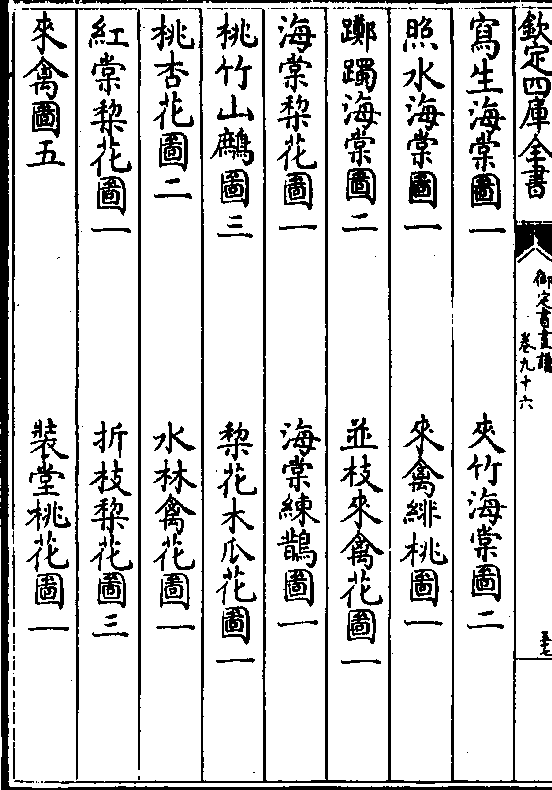 欽定四庫全書
御定書畫譜
卷九十六
寫生海棠圖一　夾竹海棠圖二
照水海棠圖一　來禽緋桃圖一
躑躅海棠圖二　並枝來禽花圖一
海棠梨花圖一　海棠練鵲圖一
桃竹山鷓圖三　梨花木瓜花圖一
桃杏花圖二　水林禽花圖一
紅棠梨花圖一　折枝梨花圖三
來禽圖五　裝堂桃花圖一